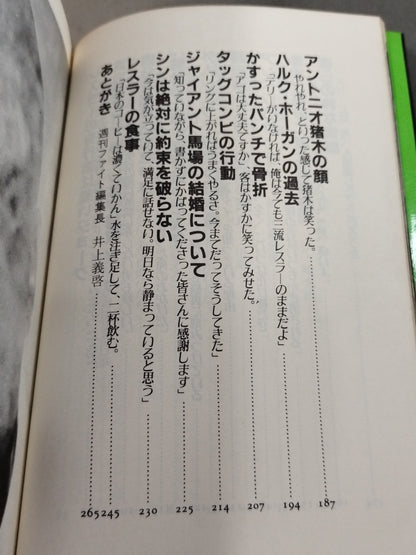 アントニオ猪木の顔
やれやれ、といった感じで猪木は笑った。
187
ハルク・ホーガンの過去
「テリーがいなければ、俺は今でも三流レスラーのままだよ」
194
かすったパンチで骨折
「アゴは大丈夫ですか」客はかすかに笑ってみせた。
207
タックコンビの行動
「リングに上がればうまくやるさ。今までだってそうしてきた」
214
ジャイアント馬場の結婚について
「知っていながら、書かずにかばってくださった皆さんに感謝します」
225
シンは絶対に約束を破らない
「今は気が立っていて、満足に話せない。明日なら静まっていると思う」
230
レスラーの食事
「日本のコーヒーは濃くていかん」水を注ぎ足して、一杯飲む。
245
あとがき 週刊ファイト編集長 井上義啓
265